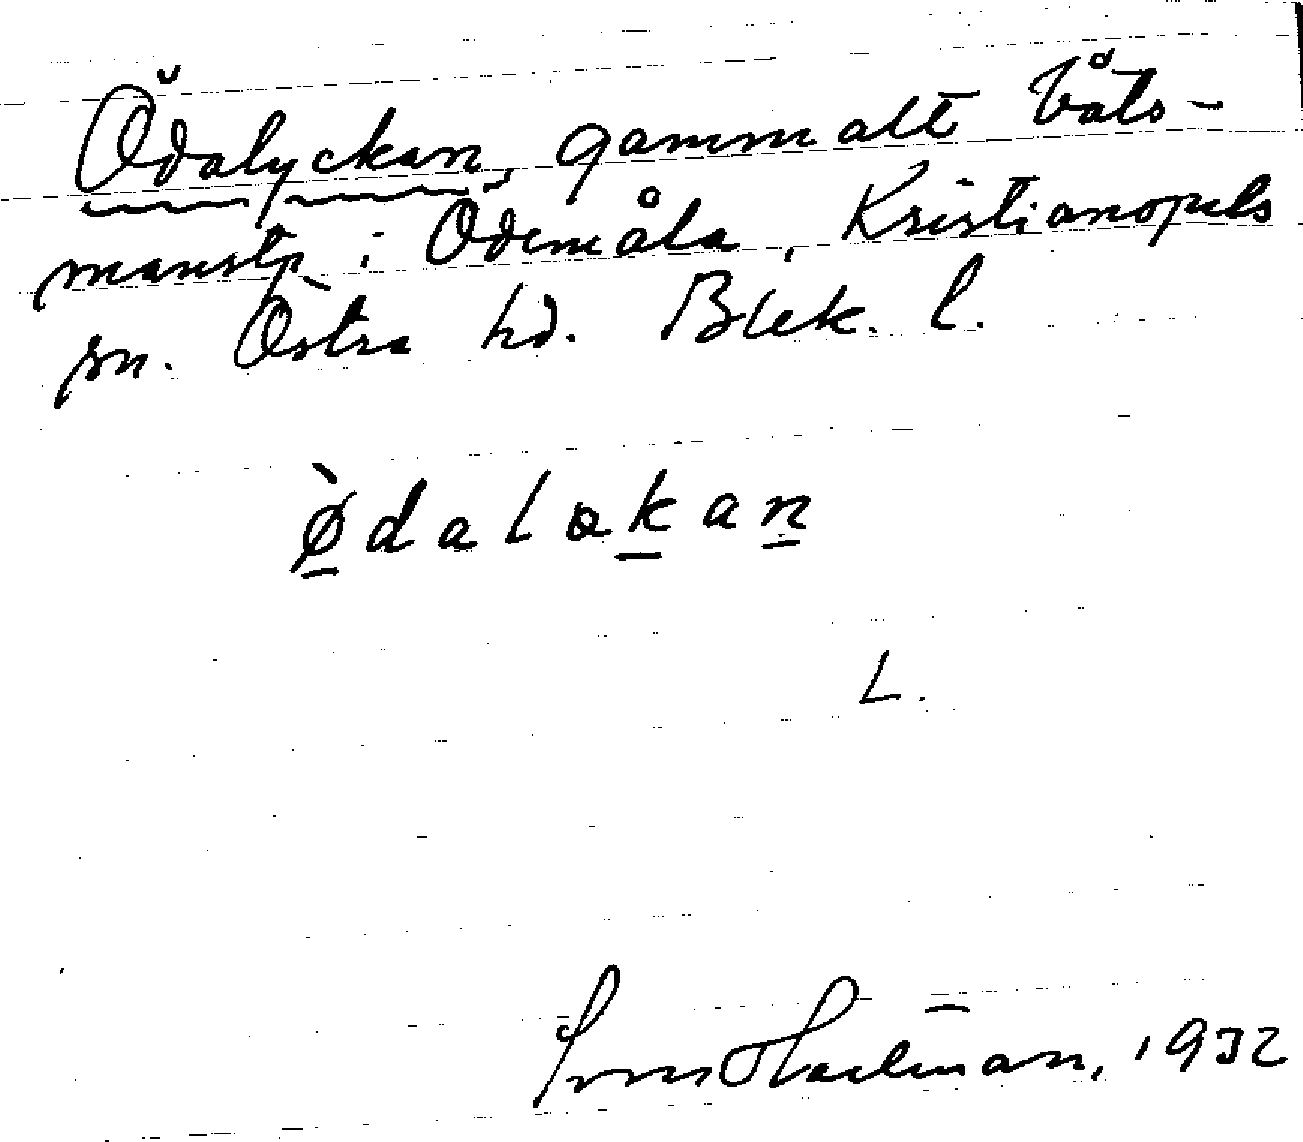 Ödalyckan, gammalt båts-
manstp i Ödemåla, Kristianopels
sn. Östra hd. Blek. l.
ø̀dalakan
L.
Hallman, 1932